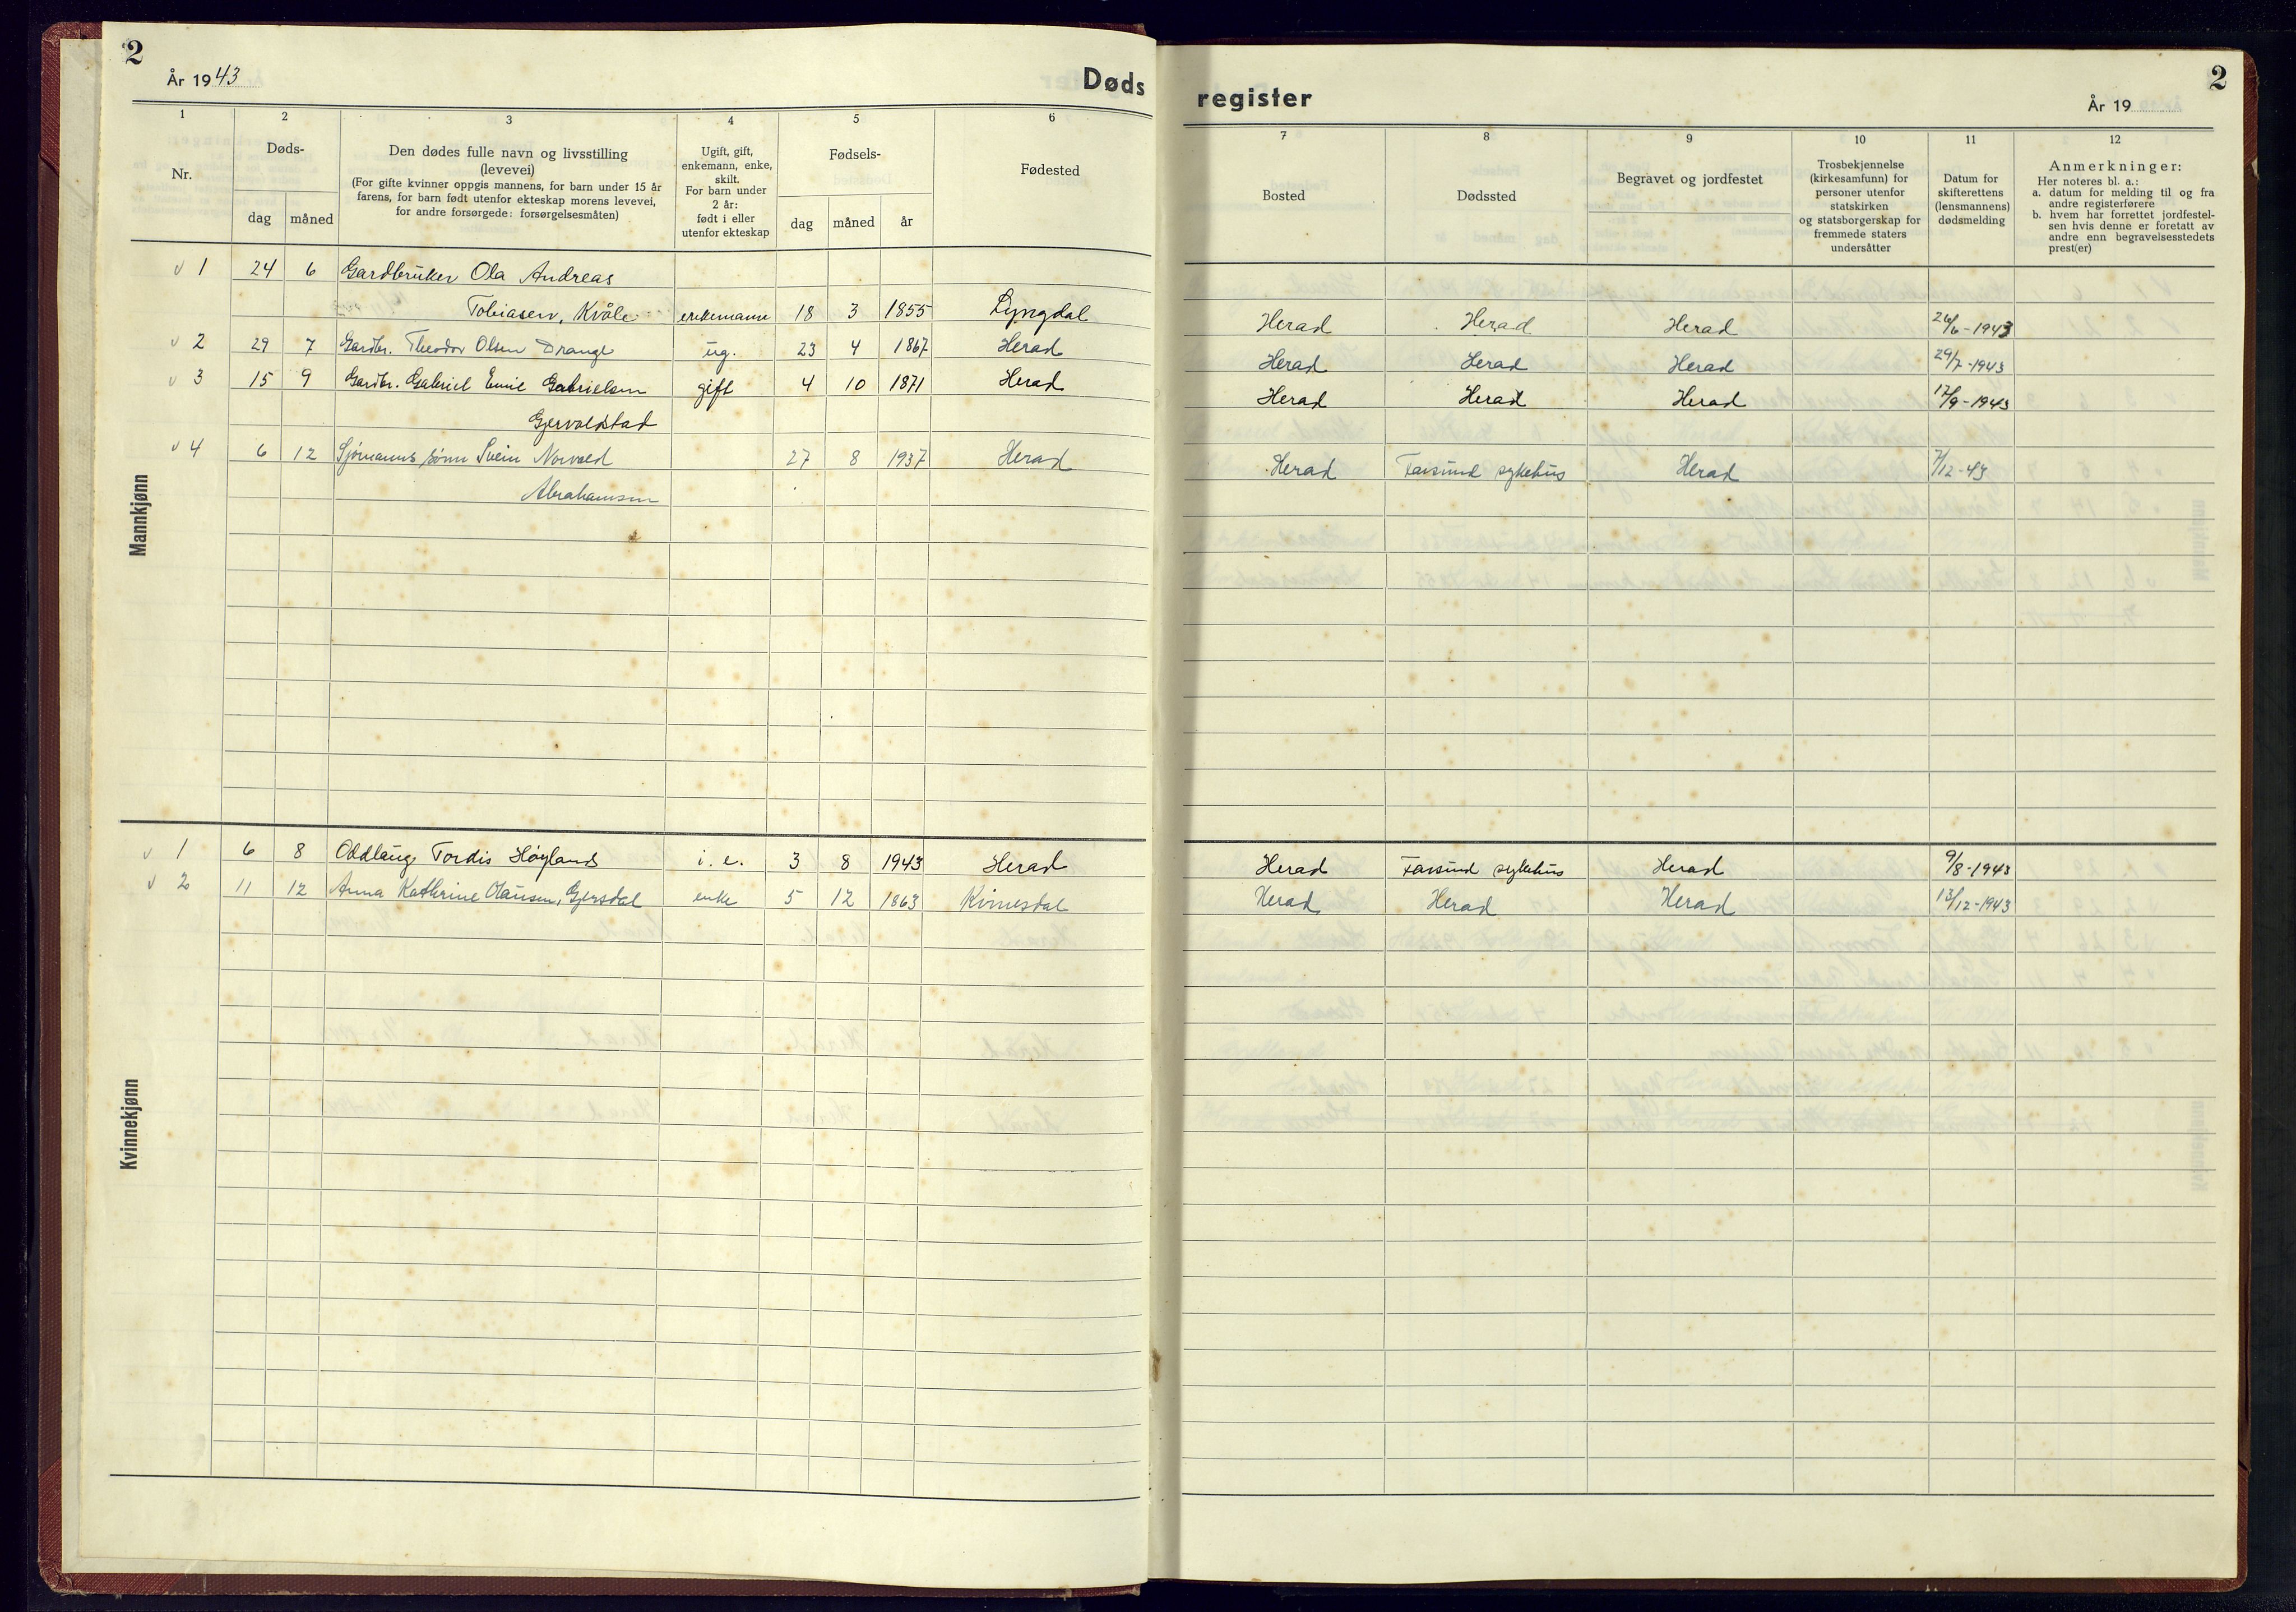 2
År 1943
Døds
register
År 19
2
1
2
3
4
5
6
7
8
9
10
11
12
Nr.
Døds-
dag
måned
Den dødes fulle navn og livsstilling
(levevei)
(For gifte kvinner oppgis mannens, for barn under 15 år
farens, for barn født utenfor ekteskap morens levevei,
for andre forsørgede: forsørgelsesmåten)
Ugift, gift,
enkemann, enke,
skilt.
For barn under
2 år:
født i eller
utenfor ekteskap
Fødsels-
dag
måned
år
Fødested
Bosted
Dødssted
Begravet og jordfestet
Trosbekjennelse
(kirkesamfunn) for
personer utenfor
statskirken
og statsborgerskap for
fremmede staters
undersåtter
Datum for
skifterettens
(lensmannens)
dødsmelding
Anmerkninger:
Her noteres bl. a.:
a. datum for melding til og fra
andre registerførere
b. hvem har forrettet jordfestel-
sen hvis denne er foretatt av
andre enn begravelsesstedets
prest(er)
Mannkjønn
v 1 24 6 Gardbruker Ola Andreas
Tobiasen, Kvåle enkemann 18 3 1855 Lyngdal Herad Herad Herad 26/6-1943
v 2 29 7 Gardbr. Theodor Olsen Drange ug. 23 4 1867 Herad Herad Herad Herad 29/7-1943
v 3 15 9 Gardbr. Gabriel Emil Gabrielsen gift 4 10 1871 Herad Herad Herad Herad 17/9-1943
Gjervoldstad
v 4 6 12 Sjømanns sønn Svein Norvald 27 8 1937 Herad Herad Farsund sykehus Herad 7/12-43
Abrahamsen
Kvinnekjønn
v 1 6 8 Oddlaug Tordis Høyland i. e. 3 8 1943 Herad Herad Farsund sykehus Herad 9/8-1943
v 2 11 12 Anna Kathrine Olausen, Gjersdal enke 5 12 1863 Kvinesdal Herad Herad Herad 13/12-1943